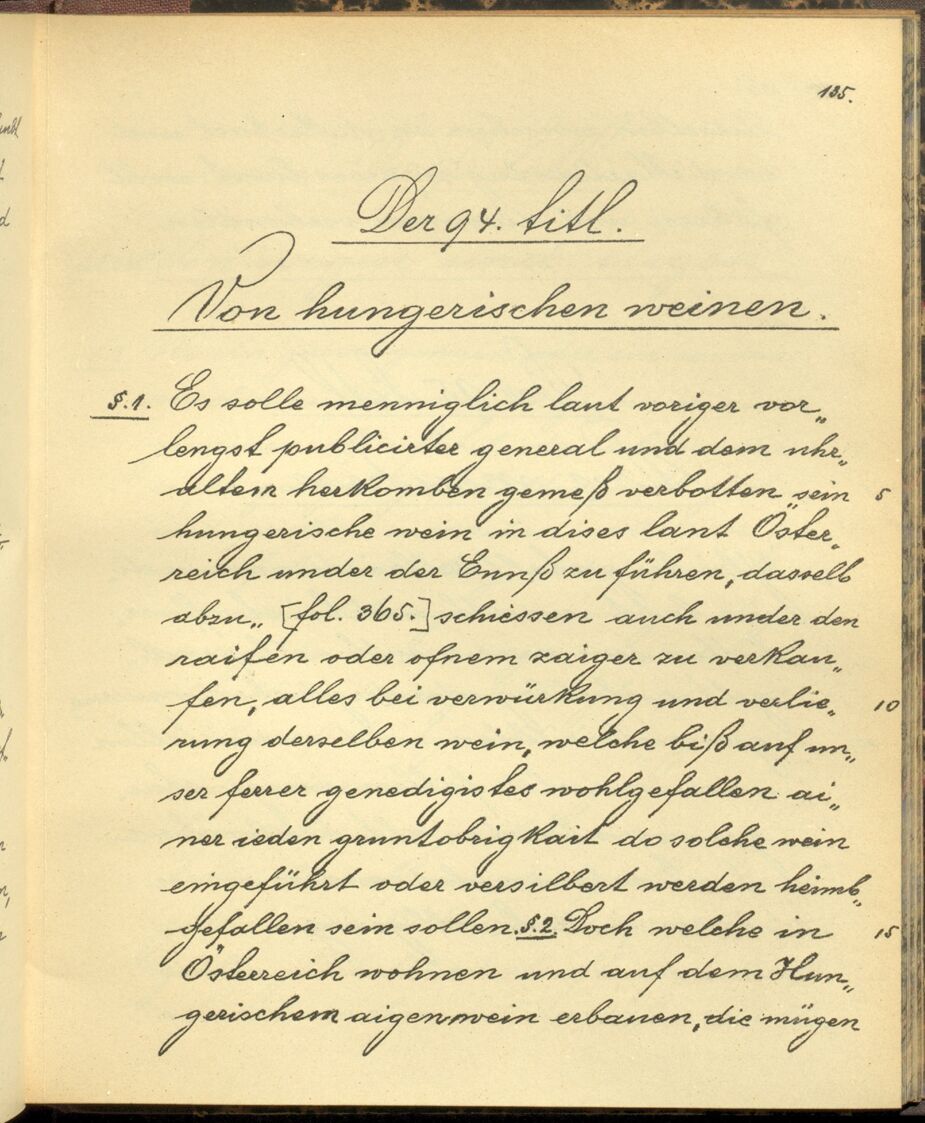 135.
Der 94. titl.
Von hungerischen weinen.
§.1. Es solle menniglich laut voriger vor„
lengst publicirter general und dem uhr„
altem herkomben gemeß verbotten sein 5
hungerische wein in dises lant Öster„
reich under der Ennß zu führen, dasselb
abzu„ [fol. 365.] schiessen auch under den
raifen oder ofnem zaiger zu verkau„
fen, alles bei verwürkung und verlie„ 10
rung derselben wein, welche biß auf un„
ser ferrer genedigistes wohlgefallen ai„
ner ieden gruntobrigkait do solche wein
eingeführt oder versilbert werden heimb„
gefallen sein sollen. §.2. Doch welche in 15
Österreich wohnen und auf dem Hun„
gerischem aigen wein erbauen, die mügen